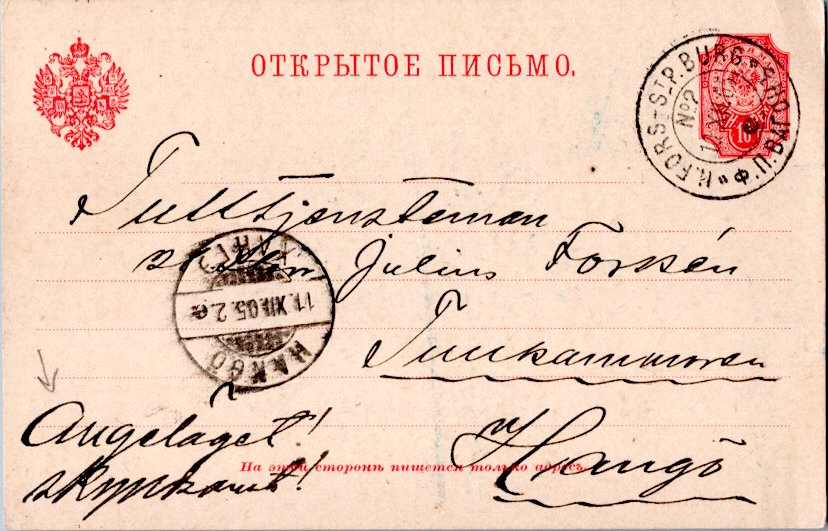 ОТКРЫТОЕ ПИСЬМО.
H.FORS-ST.P.BURG
Ф.П.ВАГ
№2
10
Tulltjensteman
Julius Forsén
Tullkammaren
HANGÖ
11.XII.05.2
Angeläget!
Hangö
На этой сторонѣ пишется только адресъ.